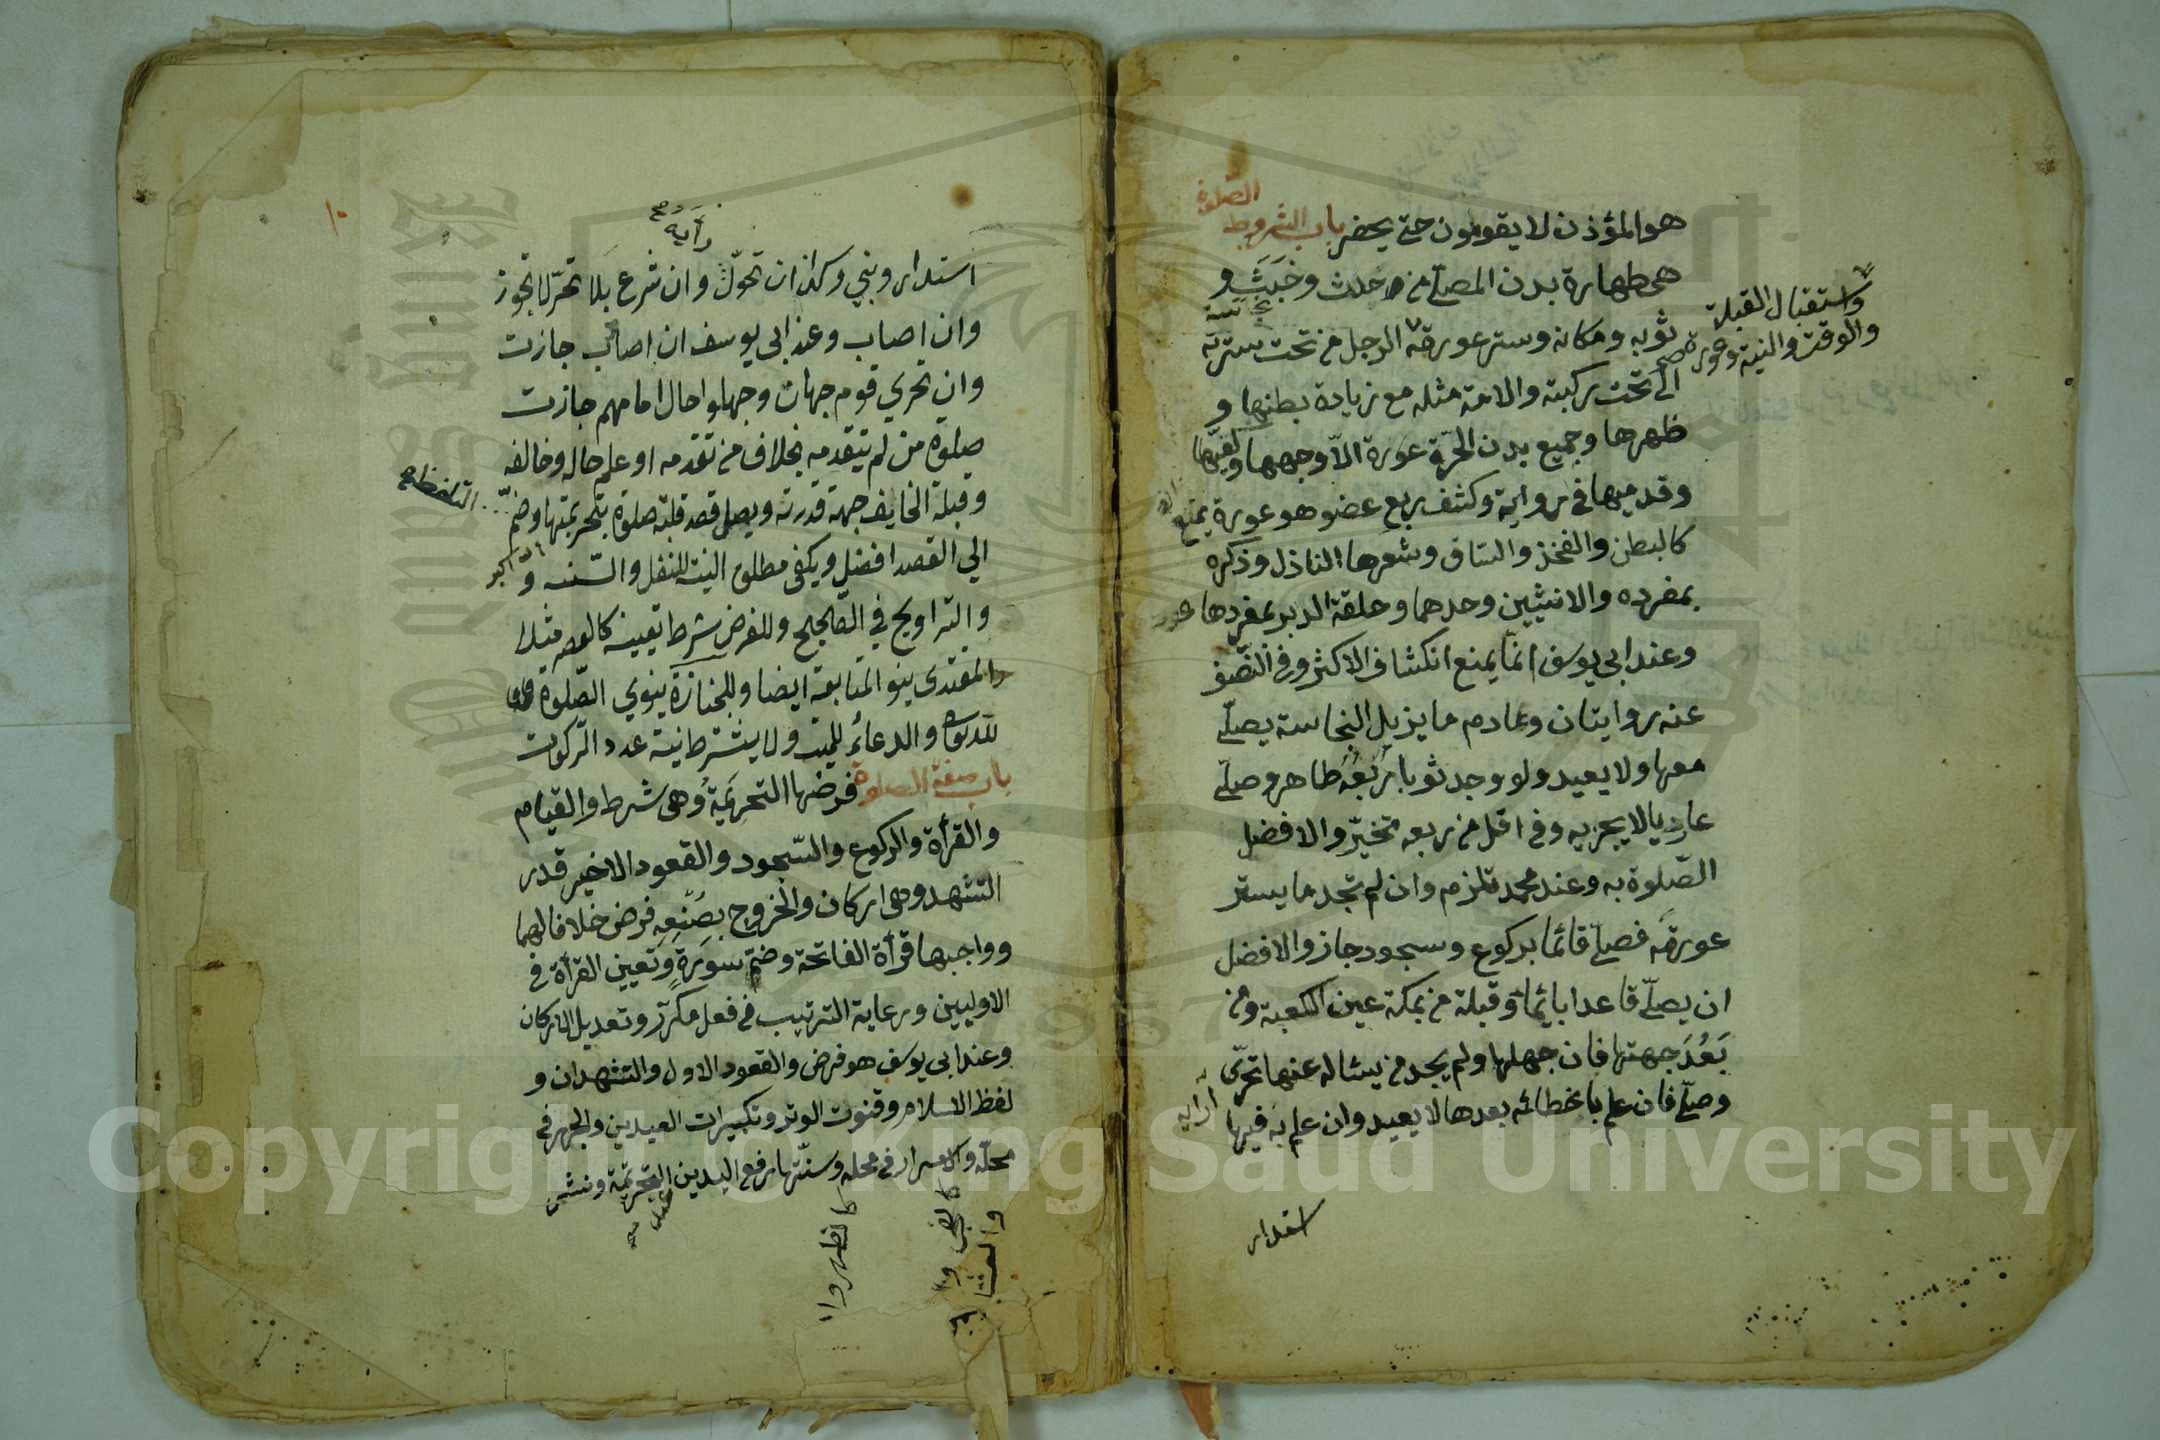 هو المؤذن لا يقومون حتى يحضر باب الشروط الصلوة
هى طهارة بدن المصلى من حدث وخبث و
نجاسة
ثوبه ومكانه وستر عورته الرجل من تحت سترته
واستقبال القبلة
والوقت والنية وعورة صح
الى تحت ركبته والامة مثله مع زيادة بطنها و
ظهرها وجميع بدن الحرة عورة الا وجهها وكفيها
وقدميها فى رواية وكشف ربع عضو هو عورة يمنع
كالبطن والفخذ والساق وشعرها النازل وذكره
بمفرده والانثيين وحدهما وحلقة الدبر بمفردها
وعند ابى يوسف انما يمنع انكشاف الاكثر وفى النصف
عنه روايتان وعادم ما يزيل النجاسة يصلى
معها ولا يعيد ولو وجد ثوبا ربعه طاهر وصلى
عاريا لا يجزيه وفى اقل من ربعه تخير والافضل
الصلوة به وعند محمد تلزم وان لم تجد ما يستر
عورته فصلى قائما بركوع وسجود جاز والافضل
ان يصلى قاعدا بايماء وقبلة من بمكة عين الكعبة ومن
بعد جهتها فان جهلها ولم يجد من يسئاله عنها تحرى
وصلى فان علم بالخطائه بعدها لا يعيد وان علم به فيها
استدار
١٠
رأيه
استدار وبنى وكذا ان تحول وان شرع بلا تحر لا تجوز
وان اصاب وعند ابى يوسف ان اصاب جازت
وان تحرى قوم جهات وجهلوا حال امامهم جازت
صلوة من لم يتقدمه بخلاف من تقدمه او علم حاله وخالفه
وقبلة الخايف جهة قدرته ويصلى قصد قلبه صلوة بتحريمتها وضم
التلفظ صح
الى القصد افضل ويكفى مطلق النية للنفل والسنة و
والتراويح فى الصحيح وللفرض شرط تعيينه كالعصر مثلا
والمقتدى ينوى المتابعة ايضا وللجنازة ينوى الصلوة
لله والدعاء للميت ولا يشترط نية عدد الركعات
باب صفة الصلوة فرضها التحريمة وهى شرط والقيام
والقرأة والركوع والسجود والقعود الاخير قدر
التشهد وهى اركان والخروج بصنعه فرض خلافا لهما
وواجبها قرأة الفاتحة وضم سورة وتعيين القرأة فى
الاوليين ورعاية الترتيب فى فعل مكرر وتعديل الاركان
وعند ابى يوسف هو فرض والقعود الاول والتشهدان و
لفظ السلام وقنوت الوتر وتكبيرات العيدين والجهر فى
محله والاسرار فى محله وسنتها رفع اليدين للتحريمة ونشر
Copyright © King Saud University
1957